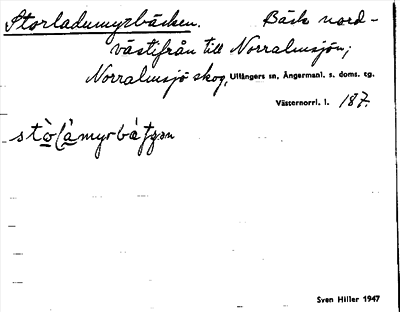 Storladumyrbäcken. Bäck nord-
västifrån till Norralmsjön;
Norralmsjö skog, Ullångers sn, Ångermanl. s. doms. tg.
Västernorrl. l. 187.
Sven Hiller 1947